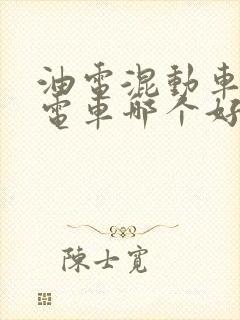 油電混動車
電車哪个好
陳士寬